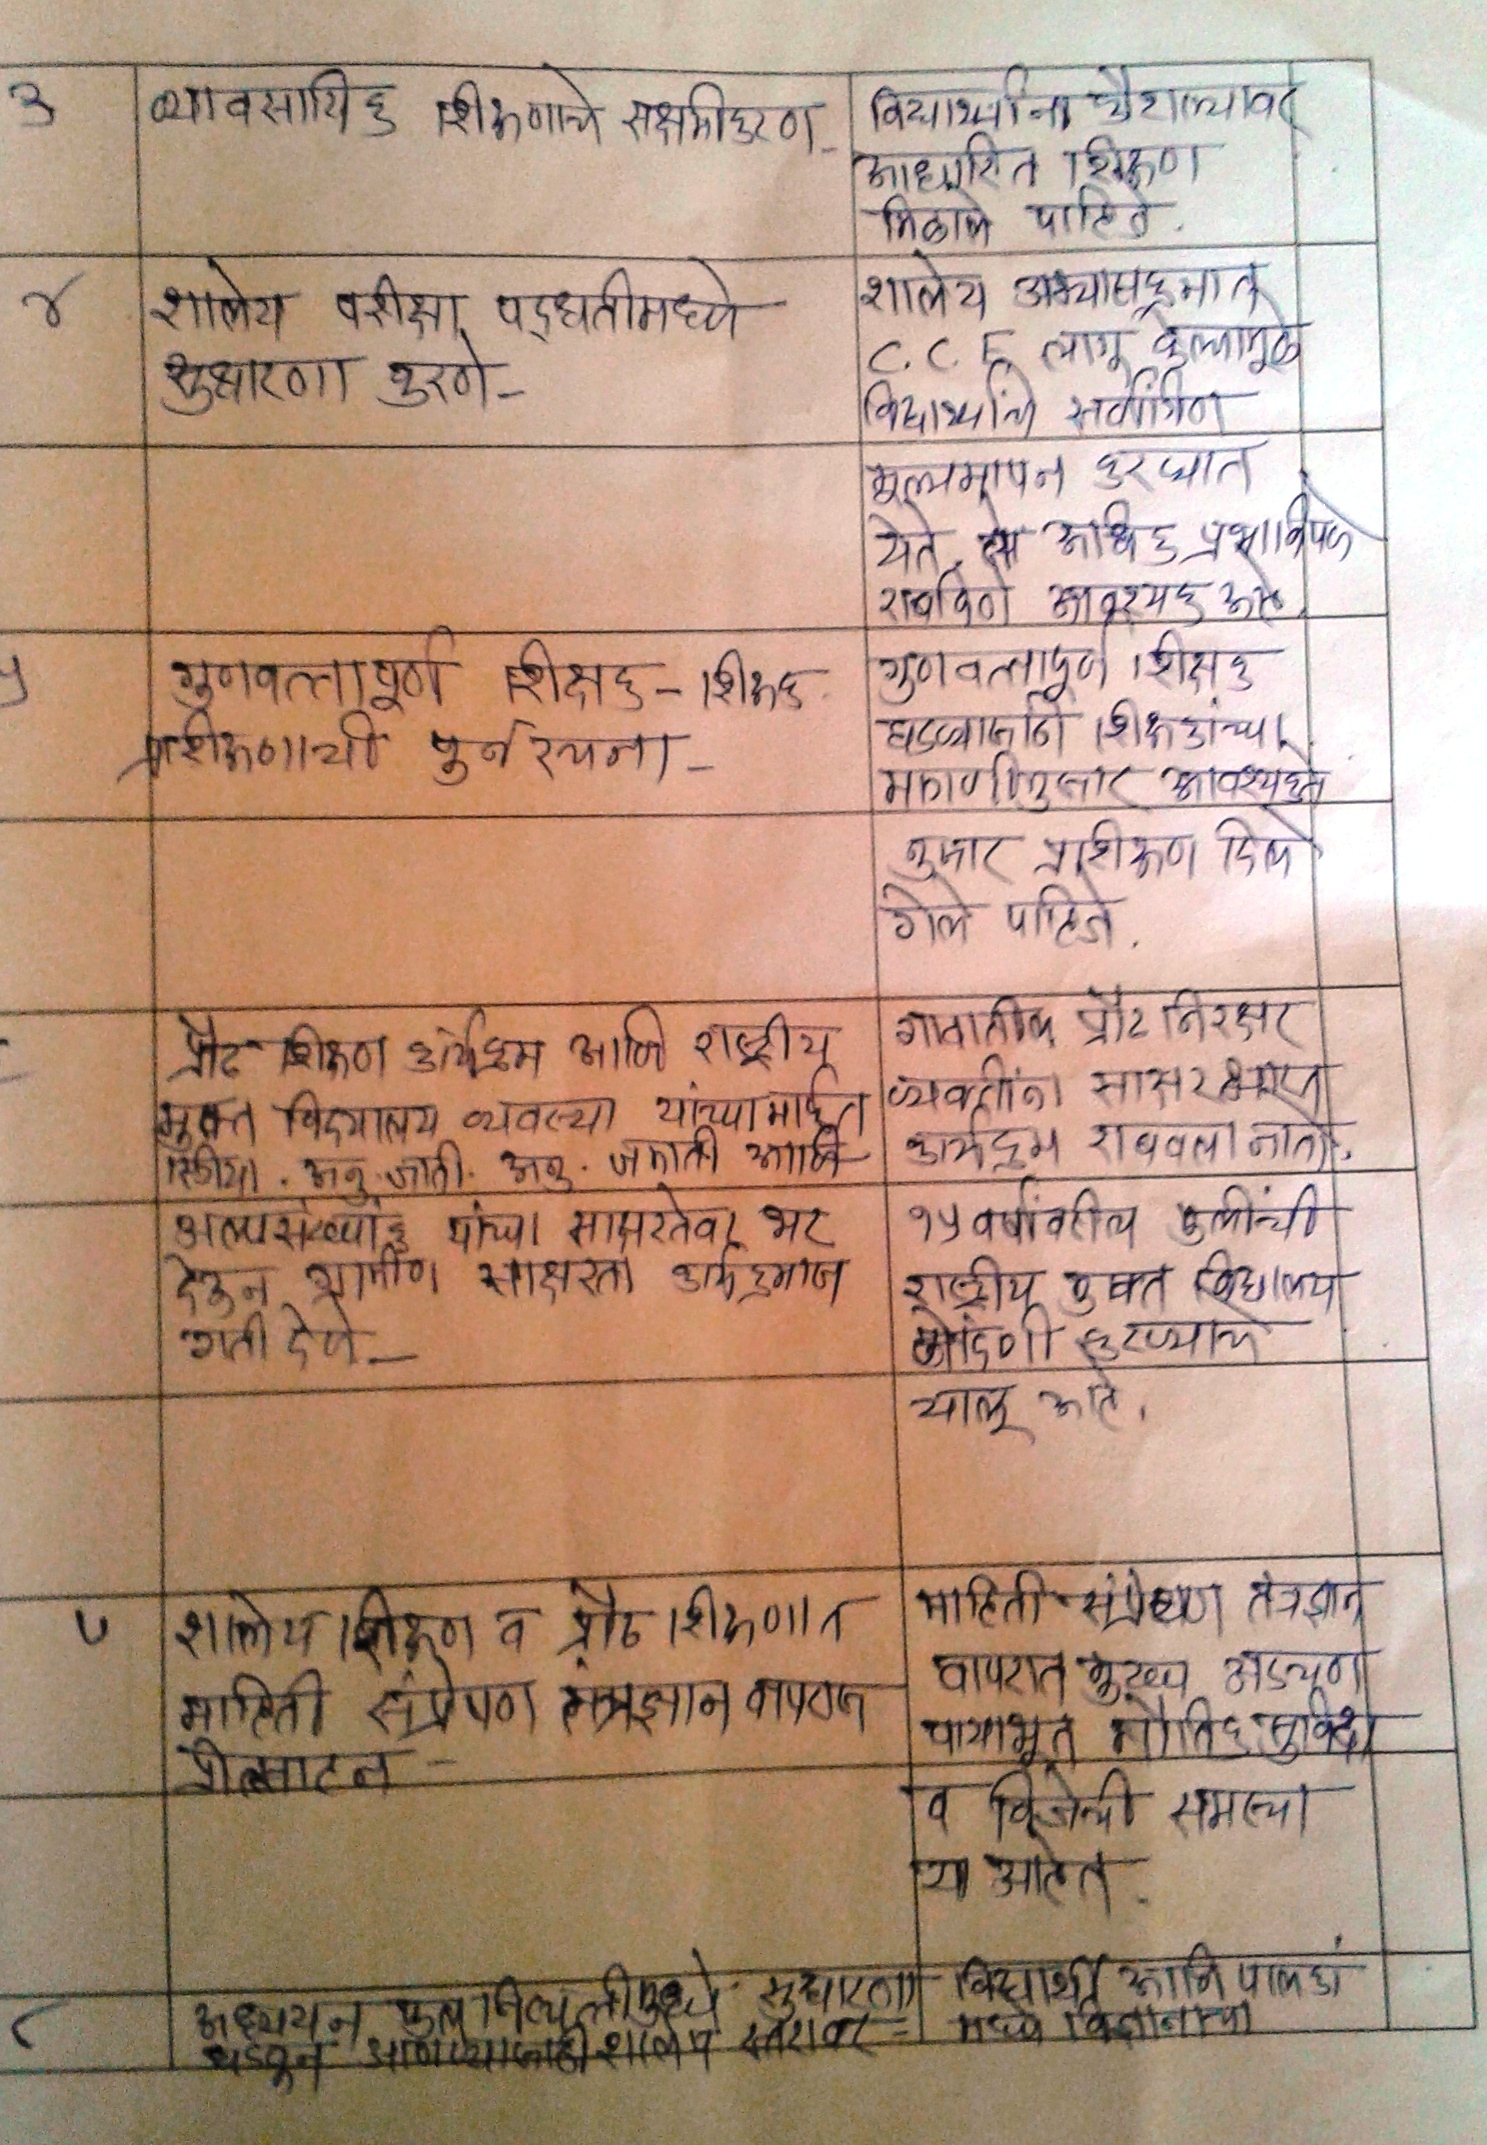 ३
व्यावसायिक शिक्षणाचे सक्षमीकरण -
विद्यार्थ्यांना कौशल्यावर
आधारित शिक्षण
मिळाले पाहिजे.
४
शालेय परीक्षा पद्धतीमध्ये
सुधारणा करणे -
शालेय अभ्यासक्रमात
C.C.E लागू केल्यामुळे
विद्यार्थ्यांचे सर्वांगिण
मूल्यमापन करण्यात
येते. अधिक प्रभाविपणे
राबविणे आवश्यक आहे.
५
गुणवत्तापूर्ण शिक्षक - शिक्षक
प्रशिक्षणाची पुर्नरचना -
गुणवत्तापूर्ण शिक्षक
घडण्यासाठी शिक्षकांच्या
मागणीनुसार आवश्यकते
नुसार प्रशिक्षण दिले
गेले पाहिजे.
प्रौढ शिक्षण कार्यक्रम आणि राष्ट्रीय
मुक्त विद्यालय व्यवस्था यांच्यामार्फत
स्त्रिया. अनु.जाती. अनु. जमाती आणि
अल्पसंख्यांक यांच्या साक्षरतेवर भर
देऊन ग्रामीण साक्षरता कार्यक्रमास
गती देणे -
गावातील प्रौढ निरक्षर
व्यक्तींना साक्षर
कार्यक्रम राबवला जातो.
१५ वर्षांवरील मुलींची
राष्ट्रीय मुक्त विद्यालय
नोंदणी करण्याचे
चालू आहे.
७
शालेय शिक्षण व प्रौढ शिक्षणात
माहिती संप्रेषण तंत्रज्ञान वापरास
प्रोत्साहन -
माहिती संप्रेषण तंत्रज्ञान
वापरात मुख्य अडचण
पायाभूत भौतिक सुविधा
व विजेची समस्या
या आहेत.
८
अध्ययन फल निष्पत्तीमुध्ये सुधारणा
घडवून आणण्यासाठी शालेय स्तरावर =
विद्यार्थी आणि पालकां
मध्ये विज्ञानाच्या